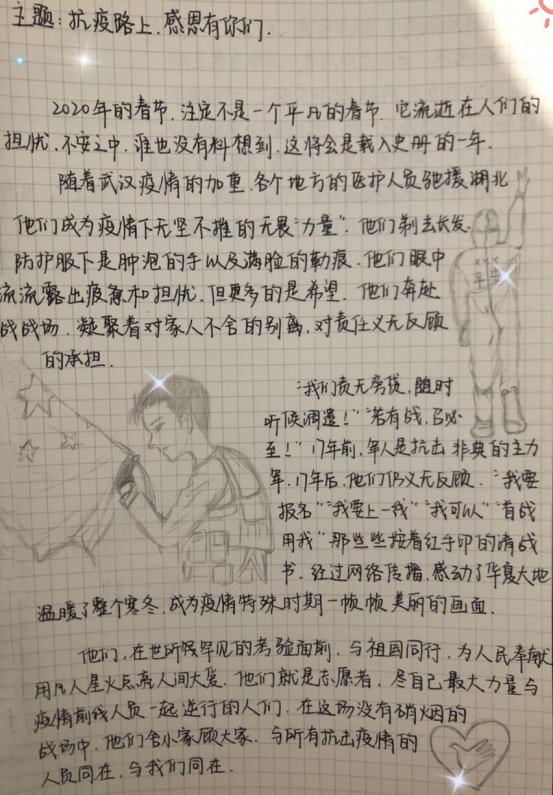 主题：抗疫路上，感恩有你们。
2020年的春节，注定不是一个平凡的春节，它流逝在人们的
担忧、不安之中，谁也没有料想到，这将会是载入史册的一年。
随着武汉疫情的加重，各个地方的医护人员驰援湖北
他们成为疫情下无坚不摧的无畏“力量”。他们剃去长发，
防护服下是肿泡的手以及满脸的勒痕，他们眼中
流流露出疲惫和担忧，但更多的是希望，他们奔赴
战战场，凝聚着对家人不舍的别离，对责任义无反顾
的承担。
“我们责无旁贷，随时
听候调遣！”“若有战，召必
至！”17年前，军人是抗击非典的主力
军，17年后，他们仍义无反顾。“我要
报名”“我要上一线”“我可以”“首战
用我”那些些按着红手印的请战
书，经过网络传播，感动了华夏大地
温暖了整个寒冬，成为疫情特殊时期一帧帧美丽的画面。
他们，在世所罕见的考验面前，与祖国同行，为人民奉献
用凡人星火点亮人间大爱，他们就是志愿者，尽自己最大力量与
疫情前线人员一起逆行的人们，在这场没有硝烟的
战场中，他们舍小家顾大家，与所有抗击疫情的
人员同在，与我们同在。